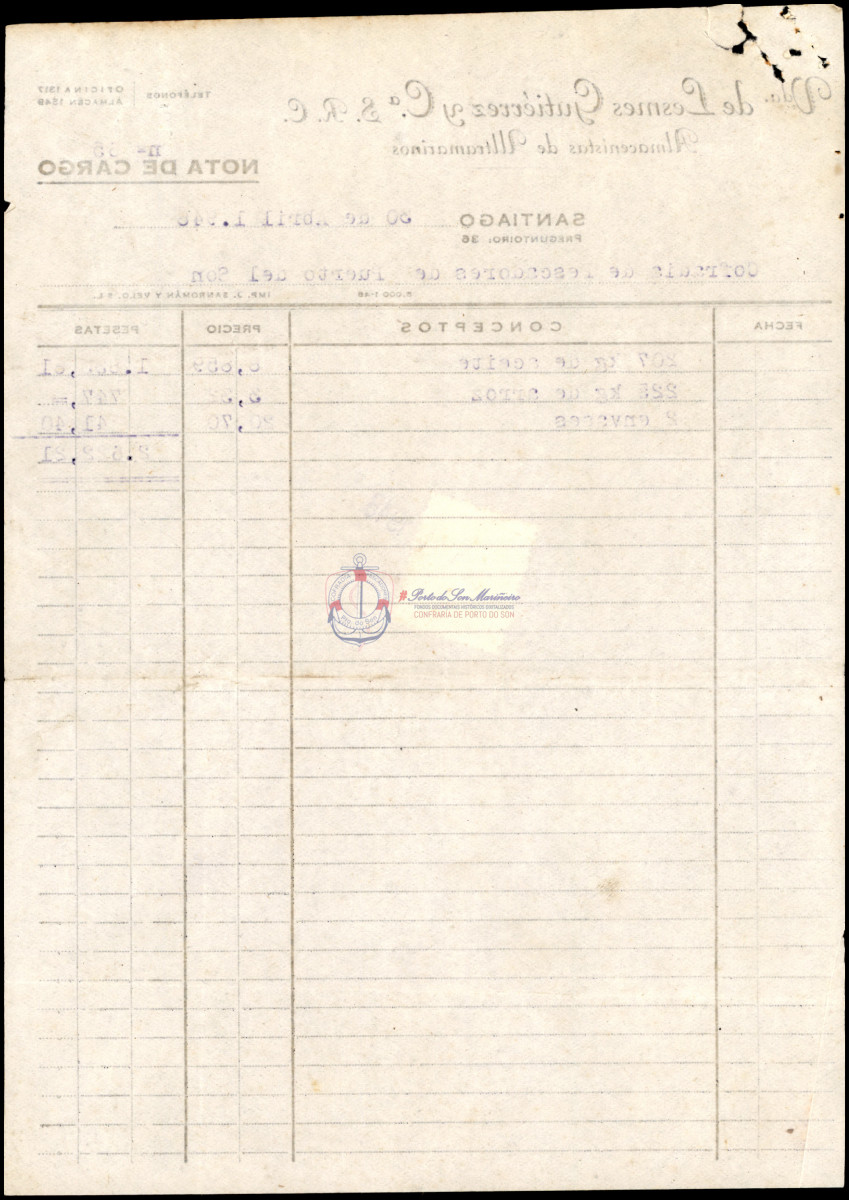 Vda. de Lesmes Gutiérrez y C.ª S. R. C.
Almacenistas de Ultramarinos
TELÉFONOS
OFICINA 1317
ALMACÉN 1849
NOTA DE CARGO
SANTIAGO 30 de Abril 1.948
PREGUNTOIRO: 36
Cofradia de Pescadores de Puerto del Son
5.000 1-48 IMP. J. SANROMÁN Y VELO, S.L.
FECHA CONCEPTOS PRECIO PESETAS
207 kg de aceite
225 kg de arroz 3,32 747,=
2 envases 20,70 41,40
COFRADÍA
Pto. do Son
#Porto do Son Mariñeiro
FONDOS DOCUMENTAIS HISTÓRICOS DIXITALIZADOS
CONFRARÍA DE PORTO DO SON